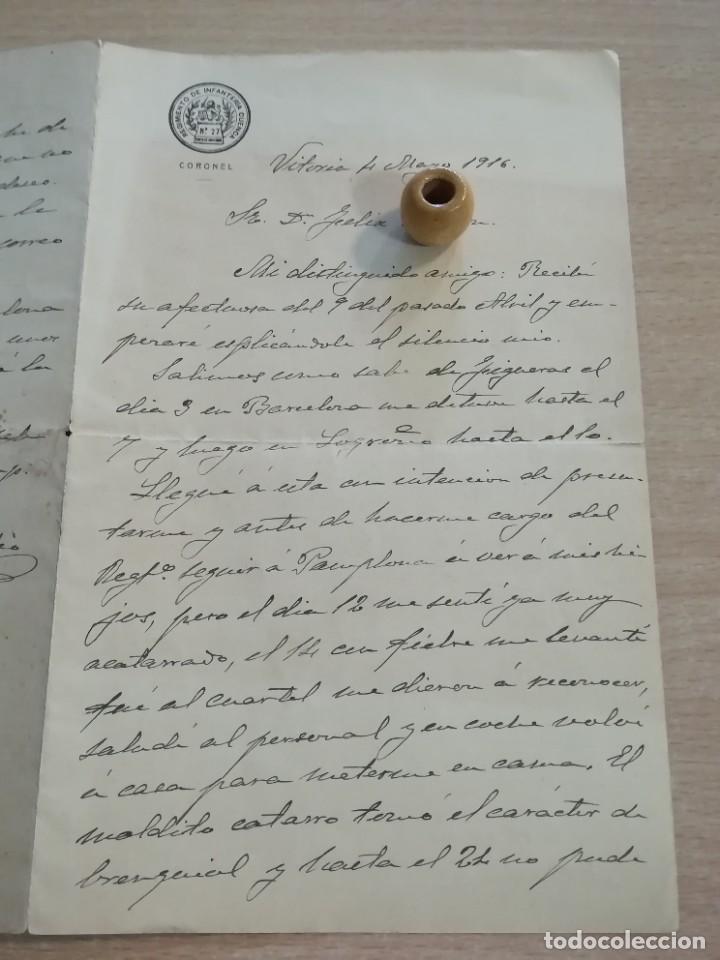 REGIMIENTO DE INFANTERIA CUENCA
Nº 27
CORONEL
Vitoria 4 Mayo 1916.
Sr. Dn. Felix
Mi distinguido amigo: Recibí
su afectuosa del 9 del pasado Abril y em-
pezaré esplicándole el silencio mio.
Salimos como sabe de Figueras el
dia 3 en Barcelona me detuve hasta el
7 y luego en Logroño hasta el 10.
Llegué á esta con intencion de presen-
tarme y antes de hacerme cargo del
Regtº. seguir á Pamplona á ver á mis hi-
jos, pero el dia 12 me sentí ya muy
acatarrado, el 14 con fiebre me levanté
fué al cuartel me dieron á reconocer,
saludé al personal y en coche volví
á casa para meterme en cama. El
maldito catarro tomó el carácter de
brenquial y hasta el 24 no pude
de
no
deseo.
la
correo
á la
todocoleccion.net